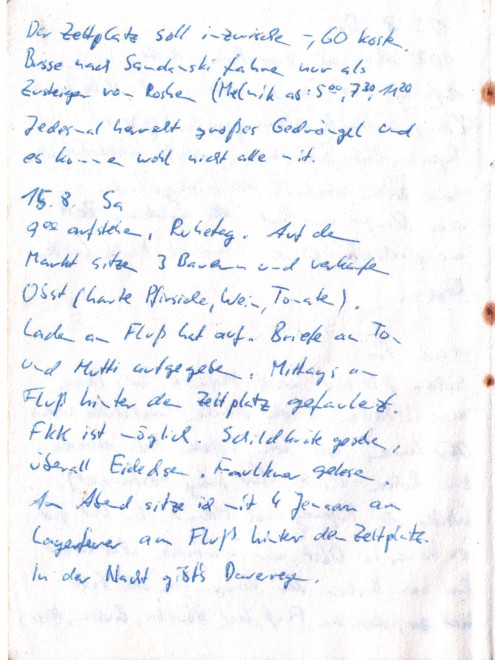 Der Zeltplatz soll inzwischen -,60 kosten.
Busse nach Sandanski fahren nur als
Zusteigen von Roshen (Melnik ab: 5⁰⁰, 7³⁰, 11²⁰
Jedesmal herrscht großes Gedrängel und
es kommen wohl nicht alle mit.
15. 8. Sa
9⁰⁰ aufstehen, Ruhetag. Auf dem
Markt sitzen 3 Bauern und verkaufen
Obst (harte Pfirsiche, Wein, Tomaten).
Laden am Fluß hat auf. Briefe an To-
und Mutti aufgegeben. Mittags am
Fluß hinter dem Zeltplatz gefaulenzt.
FKK ist möglich. Schildkröte gesehen,
überall Eidechsen. Faulkner gelesen.
Am Abend sitze ich mit 4 Jenaern am
Lagerfeuer am Fluß hinter dem Zeltplatz.
In der Nacht gibts Dauerregen.